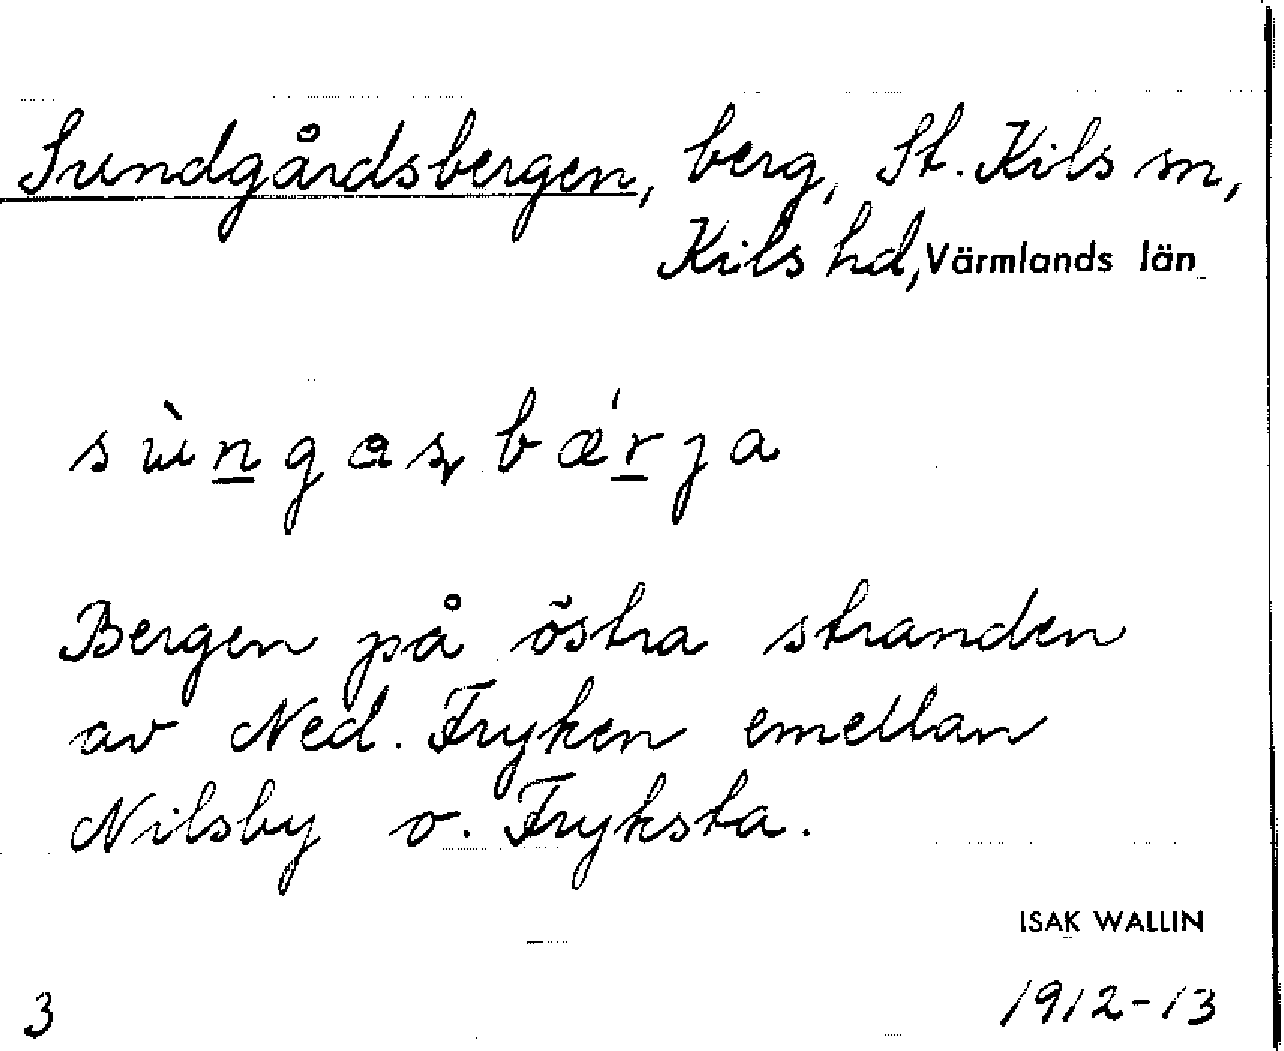 Sundgårdsbergen, berg, St. Kils sn,
Kils hd, Värmlands län
Bergen på östra stranden
av Ned. Fryken emellan
Nilsby o. Fryksta.
ISAK WALLIN
3 1912-13